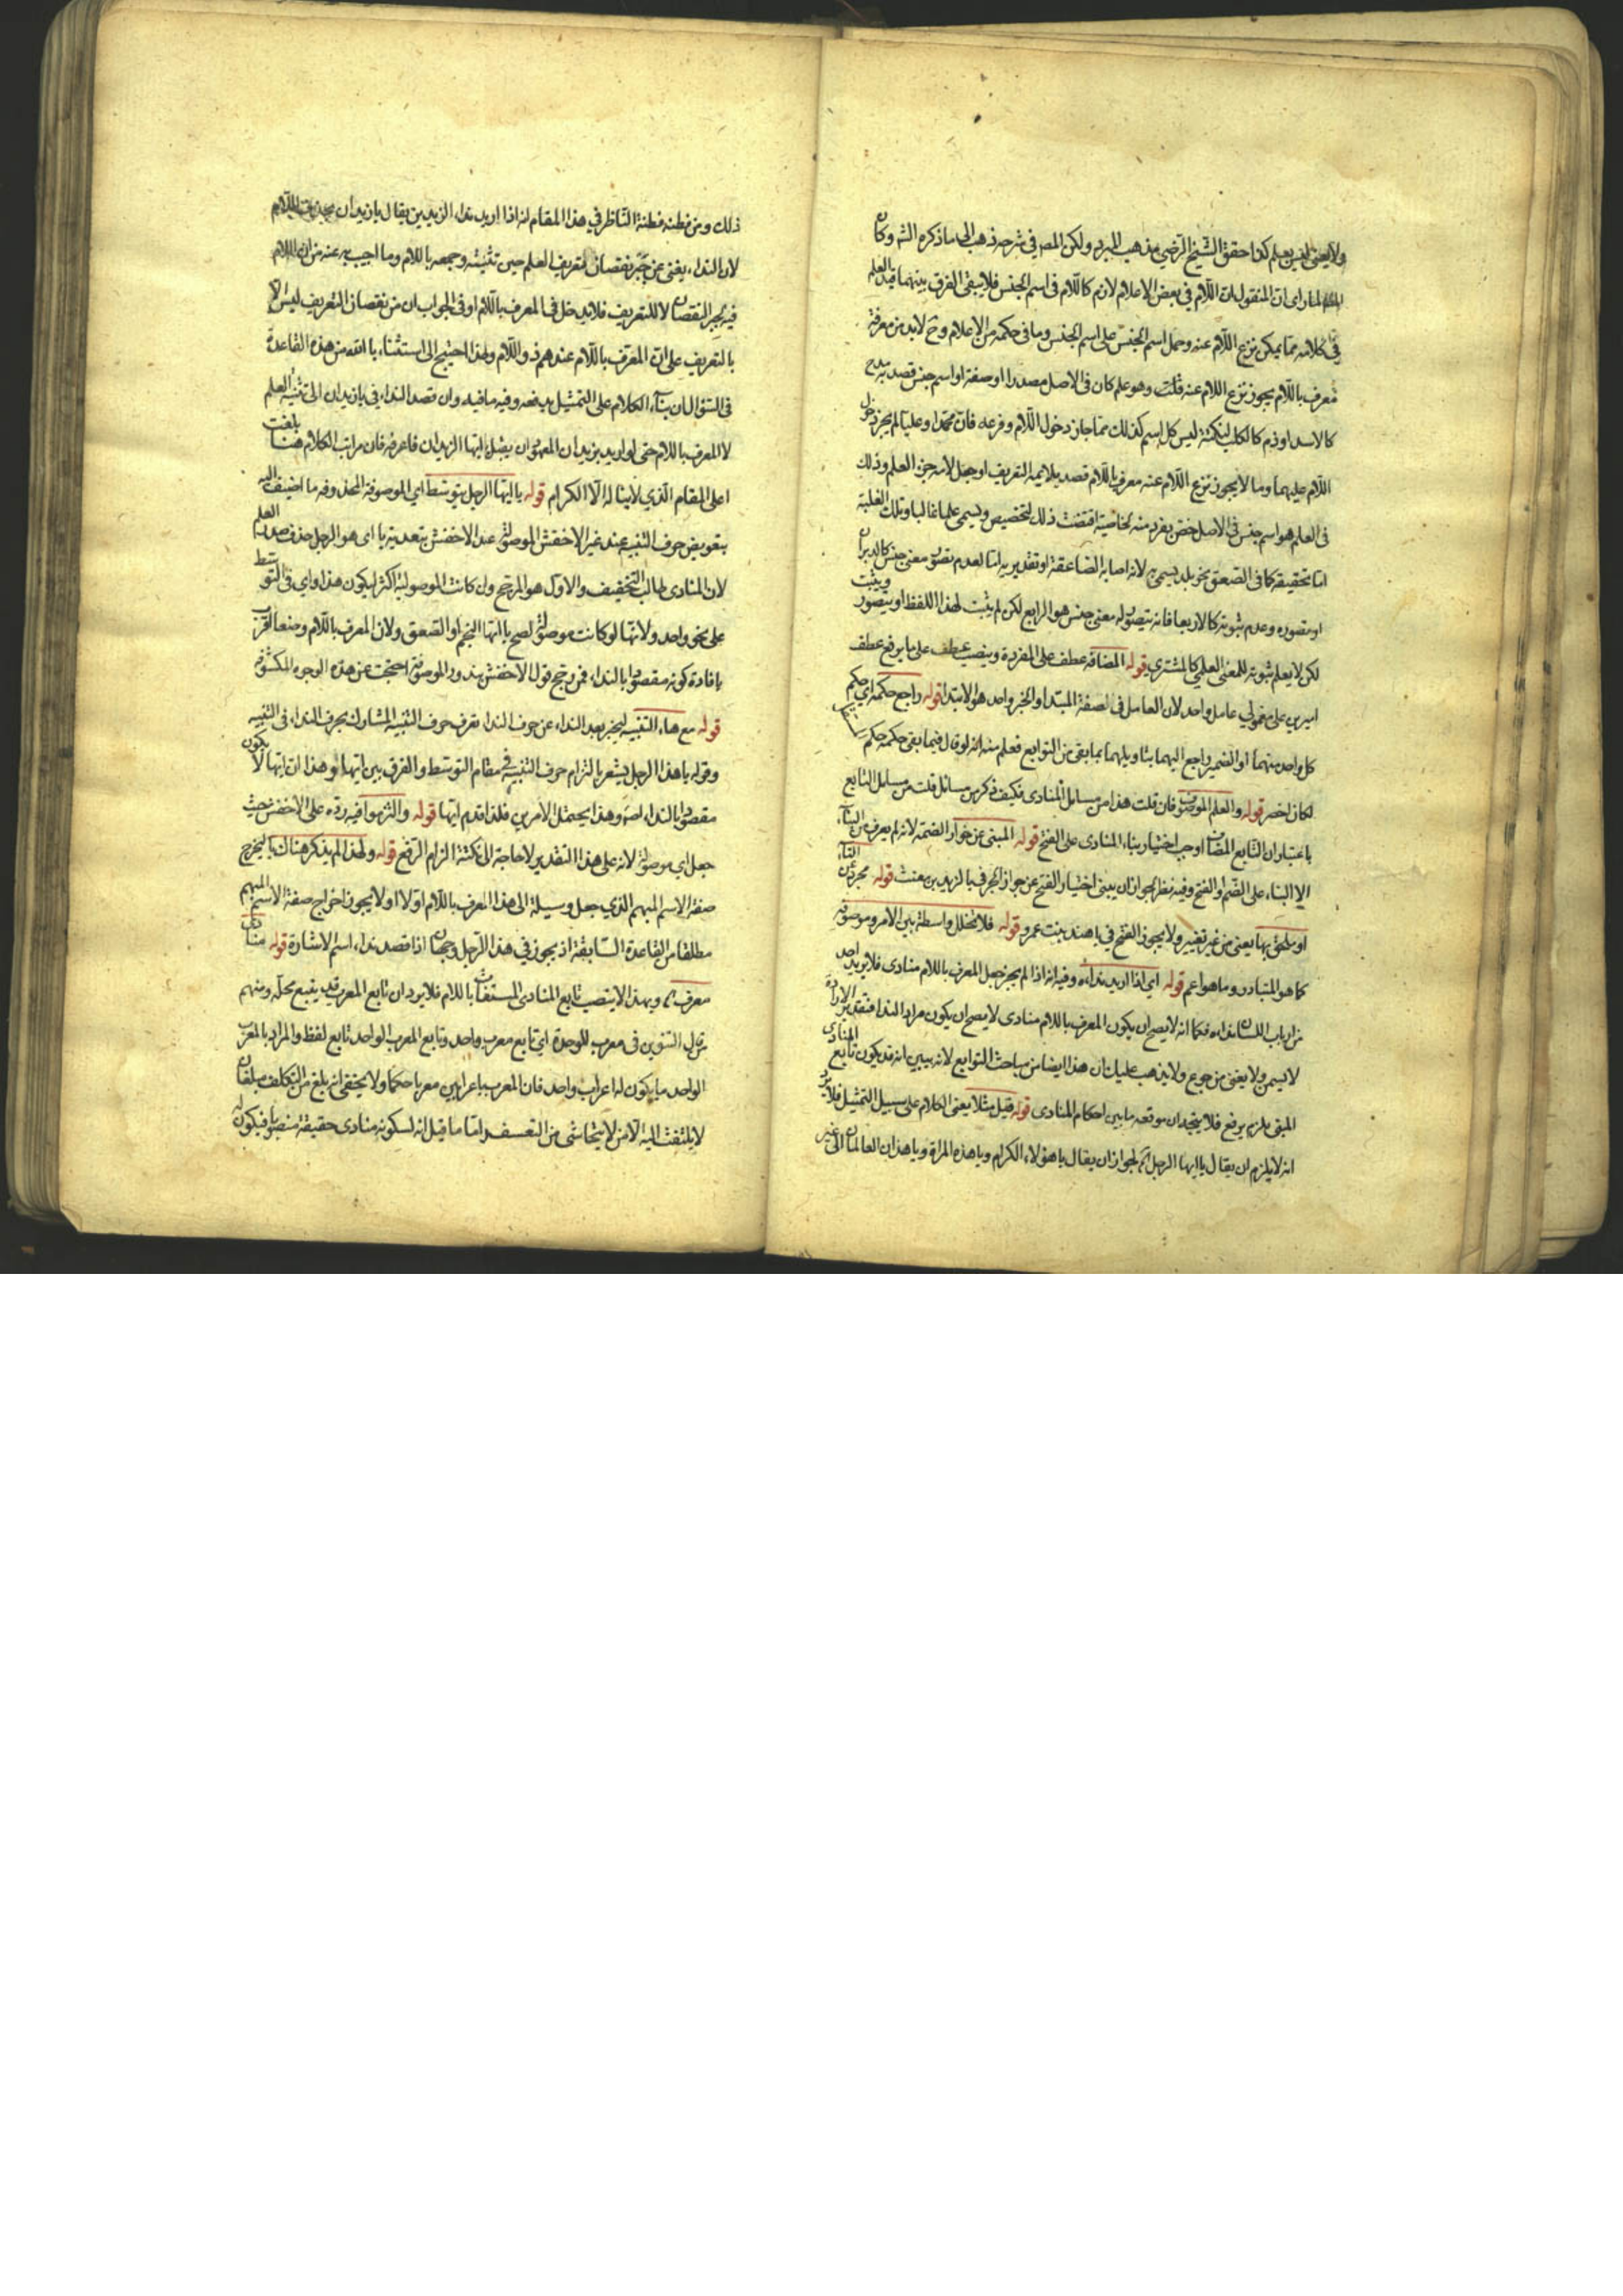 ولا يعنى ليس بعلم كذا حقق الشيخ الرضي مذهب المبرد ولكن المص في شرحه ذهب الى ما ذكره الشه وكان
لما راى ان المنقول ان اللام في بعض الاعلام لازم كاللام في اسم الجنس فلا يبقى الفرق بينهما قيد العلم
في كلامه بما يمكن نزع اللام عنه وحمل اسم الجنس على اسم الجنس وما في حكمه من الاعلام وح لابد من معرفة
معرف باللام يجوز نزع اللام عنه قلت وهو علم كان في الاصل مصدرا او صفة او اسم جنس قصد به مدح
كالاسد او ذم كالكلب لنكتة ليس كل اسم كذلك مما جاز دخول اللام وفرعه فان محمدا وعليا لم يجز دخول
اللام عليهما وما لا يجوز نزع اللام عنه معرف باللام قصد بلامه التعريف او جعل لامه جزء العلم وذلك
في العلم هو اسم جنس في الاصل خص بفرد منه لخاصية اقتضت ذلك التخصيص ويسمى علما غالبا وتلك الغلبة
اما تحقيقية كما في الصعق نحو بلد يسمى به لانه اصابه الصاعقة او تقديرية اما لعدم تصور معنى جنس كالدبران
او تصوره وعدم ثبوته كالاربعا فانه يتصور له معنى جنس هو الرابع لكن لم يثبت لهذا اللفظ او يتصور ويثبت
لكن لا يعلم ثبوته للمعنى العلمي كالمشتري قوله المضافة عطف على المفردة وينصب عطف على ما يرفع عطف
امرين على معمولي عامل واحد لان العامل في صفة المبتدا والخبر واحد هو الابتدا قوله راجع حكمه اي حكم
كل واحد منهما او الضمير راجع اليهما بتاويلهما بما بقي من التوابع فعلم منه انه لو قال فيما بقي حكمه حكم
لكان اخصر قوله والعلم الموصوف فان قلت هذا من مسائل المنادى فكيف ذكر من مسائل قلت من مسائل التابع
باعتبار ان التابع المضاف اوجب اختيار بناء المنادى على الفتح قوله المبنى عن جواز الضمة لانه لم يعرف من البناء
الا البناء على الضم والفتح وفيه نظر لجواز ان يبنى اختيار الفتح عن جواز الجر في يا لزيد بن مغث قوله مجرد عن التاء
او ملحق بها يعنى من غير تغيير ولا يجوز الفتح في يا هند بنت عمرو قوله فلا تخلل واسطة بين الامر وموصوفه
كما هو المتبادر وما هو اعم قوله اي اذا اريد نداءه وفيه انه اذا لم يجز جعل المعرف باللام منادى فلا يريد احد
من ارباب اللسان نداءه فكما انه لا يصح ان يكون المعرف باللام منادى لا يصح ان يكون مراد الندا فتقدير الارادة
لا يسمن ولا يغنى من جوع ولا يذهب عليك ان هذا ايضا من مباحث التوابع لانه يبين انه قد يكون تابع المنادى
المبنى يلزم رفع فلا يتجه ان موقعه ما بين احكام المنادى قوله قيل مثلا يعنى الكلام على سبيل التمثيل فلا يرد
انه لا يلزم ان يقال يا ايها الرجل لجواز ان يقال يا هؤلاء الكرام ويا هذه المراة ويا هذان العالمان الى غير
ذلك ومن فطنه فطنة الناظر في هذا المقام انه اذا اريد نداء الزيدين يقال يا زيدان بحذف اللام
لان النداء يغنى عن جبر نقصان تعريف العلم حين تثنيته وجمعه باللام وما اجيب به عنه من ان اللام
فيه لجبر النقصان لا للتعريف فلا يدخل في المعرف باللام او في الجواب ان من نقصان التعريف ليس الا
بالتعريف على ان المعرف باللام عندهم ذو اللام ولهذا احتيج الى استثناء يا الله من هذه القاعدة
في السؤال ان بناء الكلام على التمثيل يدفعه وفيه ما فيه وان قصد النداء في يا زيدان الى تثنية العلم
لا المعرف باللام حتى لو اريد بزيدان المعهودان يقال ايها الزيدان فاعرفه فان مراتب الكلام هنا بلغت
اعلى المقام الذي لا يناله الا الكرام قوله يا ايها الرجل بتوسط اي الموصوفة المحذوفه ما اضيف اليه
بتعويض حرف التنبيه عند غير الاخفش الموصولة عند الاخفش بتعدية يا اي هو الرجل حذف صدر
لان المنادى طالب التخفيف والاول هو المرجح وان كانت الموصولية اكثر ليكون هذا واي في التوسط
على نحو واحد ولانها لو كانت موصولة لصح يا ايها النجم او الصعق ولان المعرف باللام وضعا اقرب
بافادة كونه مقصودا بالنداء فمن رجح قول الاخفش بندور الموصوفة احتجت عن هذه الوجوه المكشوفة
قوله مع هاء التنبيه ليجبر بعد النداء عن حرف النداء بقرب حرف التنبيه المشارك بحرف النداء في التنبيه
وقوله يا هذا الرجل يشعر بالتزام حرف التنبيه في مقام التوسط والفرق بين ايها وهذا ان ايها لا يكون
مقصودا بالنداء اصلا وهذا يحتمل الامرين فلذا قدم ايها قوله والتزموا فيه رده على الاخفش حيث
جعل اي موصولة لانه على هذا التقدير لا حاجة الى نكتة التزام الرفع قوله ولهذا لم يذكر هناك بما يخرج
صفة الاسم المبهم الذي جعل وسيلة الى هذا المعرف باللام اولا او لا يجوز اخراج صفة الاسم المبهم
مطلقا من القاعدة السابقة اذ يجوز في هذا الرجل وجهان اذا قصد نداء اسم الاشارة قوله منادى
معرف وبهذا لا ينتصب تابع المنادى المستغاث باللام فلا يرد ان تابع المعرب قد يتبع محله ومنهم
من قال التنوين في معرب للوحدة اي تابع معرب واحد وتابع المعرب الواحد تابع لفظ والمراد بالمعرب
الواحد ما يكون له اعراب واحد فان المعرب باعرابين معربا حكما ولا يخفى انه بلغ من التكلف مبلغا
لا يلتفت اليه الا من لا يتحاشى من التعسف اما ما قيل انه لسكونه منادى حقيقة منصوبا فيكون له